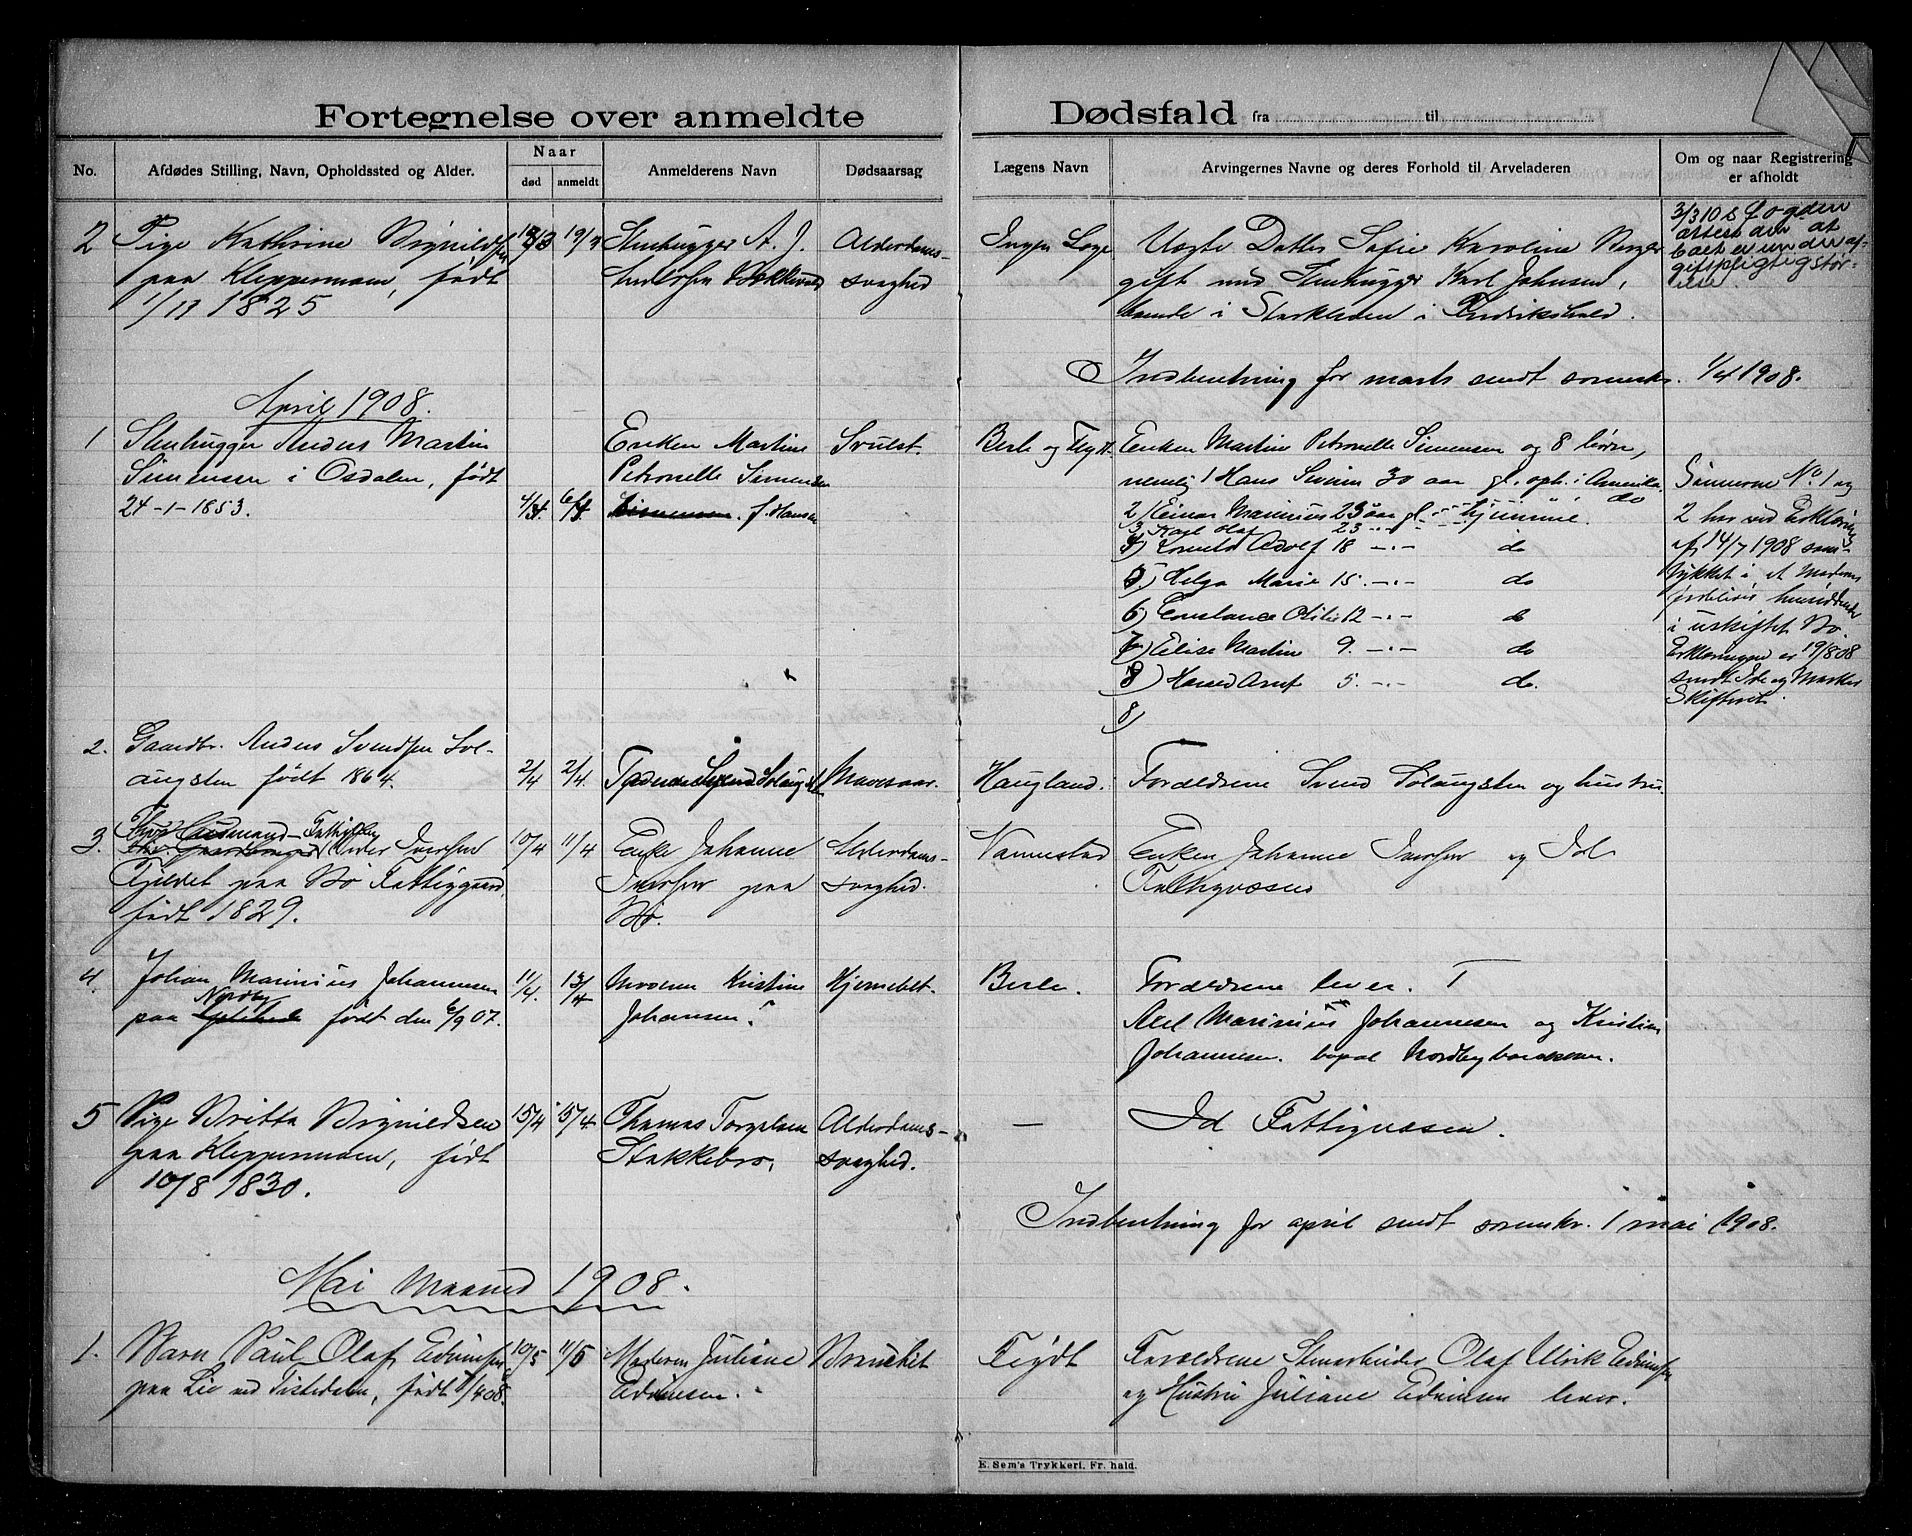 Fortegnelse over anmeldte Dødsfald fra til
No.
Afdødes Stilling, Navn, Opholdssted og Alder.
Naar
død
anmeldt
Anmelderens Navn
Dødsaarsag
Lægens Navn
Arvingernes Navne og deres Forhold til Arveladeren
Om og naar Registrering
er afholdt
2
Pige Kathrine
paa Kleppermoen, født
1825
19/3
Stenhugger A. J.
Alderdoms-
svaghed
Ingen Læge
Uægte Datter Sofie Karoline
gift med Stenhugger Karl Johansen,
boende i i Fredrikshald.
Indberetning for marts sendt sorenskr. 1/4 1908.
April 1908.
1
Stenhugger Anders Martin
Simensen i Osdalen, født
24-1-1853.
4/4.
6/4.
Enken Martine
Petronelle Simensen
f. Hansen
Svulst.
Berle og Flydt.
Enken Martine Petronelle Simensen og 8 børn,
nemlig 1 Hans Severin 30 aar gl. oph. i Amerika.
2) Einar Marinius 23 aar gl. do
3 Karl Olaf 23 hjemme.
4) Adolf 18 -"- do
5) Helga Marie 15. -"- do
6) Constance Otilie 12 -"- do
7) Elise Martin 9. -"- do
8) 5. -"- do.
8)
Sønnerne No. 1 og
2 har ved Erklæring
af 14/7 1908 sam-
tykket i, at Moderen
i uskiftet Bo.
Erklæringen er 19/8 08
sendt Ide og Marker
Skifteret.
2.
Gaardbr. Anders Svendsen Sol-
angsten født 1864.
2/4
2/4.
Mavesaar.
Haugland.
Forældrene Svend Solangsten og hustru.
3.
Iversen
Fjeldet paa Bø Fattiggaard,
født 1829.
10/4
11/4
Enke Johanne
Iversen paa
Bø.
Alderdoms-
svaghed.
Nannestad
Enken Johanne Iversen og Id
Fattigvæsen
4.
Johan Marinius Johannesen
Nordby
paa født den 6/9 07.
11/4.
13/4
Moderen Kristine
Johansen.
Hjernebet.
Berle.
Forældrene lever.
Axel Marinius Johannesen og Kristine
Johannesen. bopæl Nordbybarakkerne.
5
Pige Britta Brynildsen
paa Kleppermoen, født
10/8 1830.
15/4
15/4
Thomas Torgelsen
Stakkebro,
Alderdoms-
svaghed.
—
Id Fattigvæsen.
Indberetning for april sendt sorenskr. 1 mai 1908.
Mai Maaned 1908.
1.
Barn Paul Olaf Edvinsen
paa Lie ved Tistedalen, født 08.
10/5
11/5
Moderen Juliane
Edvinsen.
Feydt
Forældrene Stenarbeider Olaf Ulrik Edvinsen
og Hustru Juliane Edvinsen lever.
E. Sem's Trykkeri. Fr. hald.